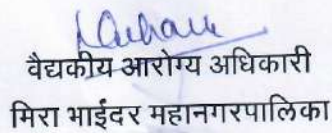 वैद्यकीय आरोग्य अधिकारी
मिरा भाईंदर महानगरपालिका